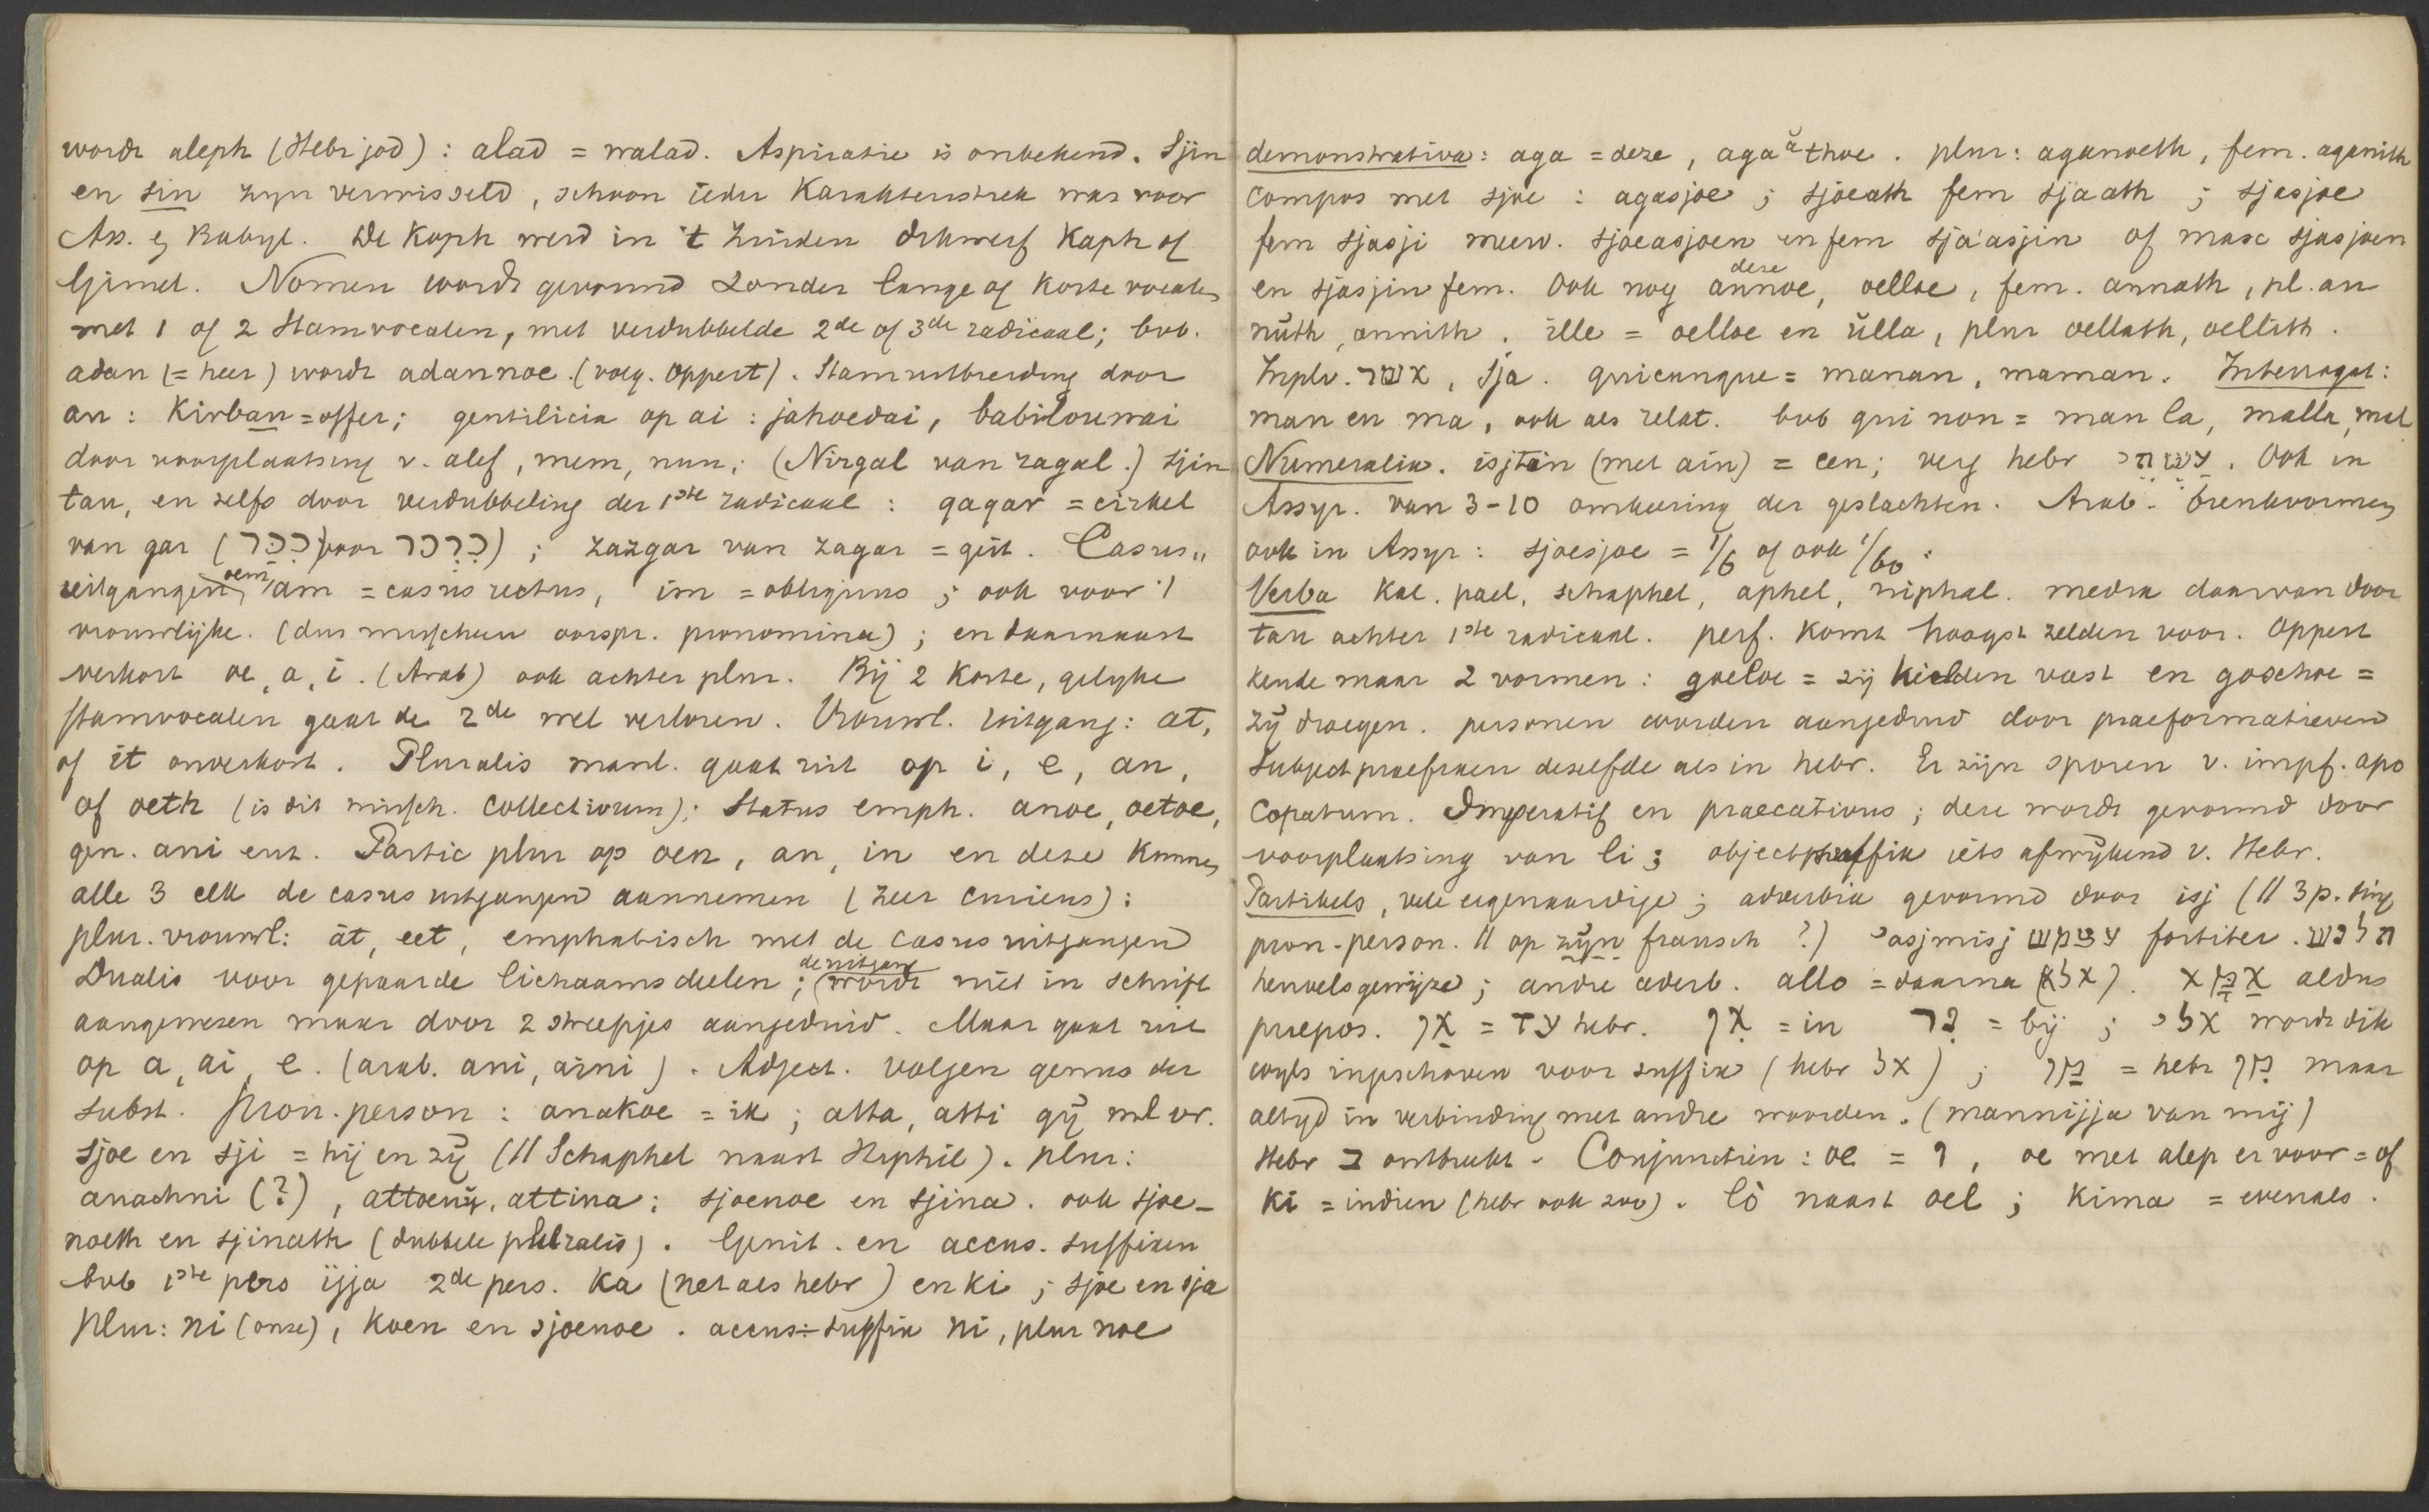 wordt aleph (Hebr jod) : alad = walad. Aspiratie is onbekend. Sjin
en sin zyn verwisseld, schoon ieder karakterstrek was voor
Ass. en Babyl. De Koph werd in 't Zuiden dikwerf Kaph of
Gimel. Nomen wordt gevormd zonder lange of korte vocalen
met 1 of 2 stamvocalen, met verdubbelde 2de of 3de radicaal; bvb.
adan (= heer) wordt adannoe. (volg. Oppert). Stamuitbreiding door
an : Kirban = offer; gentilicia op ai : jahoedai, babilounai
door voorplaatsing v. alef, mem, nun, (Nirgal van ragal.) sjin
tau, en zelfs door verdubbeling der 1ste radicaal : qaqar = cirkel
van gar (ככר voor כרכר) ; zazgar van zagar = gut. Casus„
uitgangen, oem, am = casus rectus, im = obliquus ; ook voor 't
vrouwlijke. (dus misschien oorspr. pronomina) ; en daarnaast
verkort oe, a, i. (Arab) ook achter plur. Bij 2 korte, gelyke
stamvocalen gaat de 2de wel verloren. Vrouwl. uitgang : at,
of it onverkort. Pluralis manl. gaat uit op i, e, an,
of oeth (is dit missch. collectivum); Status emph. anoe, oetoe,
gen. ani enz. Partic plur op oen, an, in en deze kunnen
alle 3 elk de casus uitgangen aannemen (zeer curieus) :
plur. vrouwl: at, eet, emphatisch met de casus uitgangen
Dualis voor gepaarde lichaamsdeelen ; (wordt de uitgang niet in schrift
aangewezen maar door 2 streepjes aangeduid. Maar gaat uit
op a, ai, e. (arab. ani, aini) . Adject. volgen genus der
subst. Pron. person : anakoe = ik ; atta, atti gÿ ml vr.
sjoe en sji = hij en zÿ (// Schaphel naast Hiphil). plur:
anachni (?) , attoenÿ, attina ; sjoenoe en sjina. ook sjoe-
noeth en sjinath (dubbele pluralis) . Genit. en accus. suffixen
bvb 1ste pers ijja 2de pers. ka (net als hebr) en ki ; sjoe en sja
plur: ni (onze), koen en sjoenoe . accus-suffix ni, plur noe
demonstrativa: aga = deze, agaäthoe . plur: aganoeth, fem. aganith
compos met sjoe : agasjoe ; sjoeath fem sjaath ; sjasjoe
fem sjasji meerv. sjoeasjoen en fem sja'asjin of masc sjasjoen
en sjasjin fem. Ook nog annoe deze, oelloe, fem. annath, pl. an
nuth, annith. ille = oelloe en ulla, plur oellath, oellith.
Inplv. אשר, sja. quicunque = manan, maman. Interrogat:
man en ma, ook als relat. bvb qui non = man la, malla, mal
Numeralia. isjtin (met ain) = een; verg hebr עשתי. Ook in
Assyr. van 3-10 omkeering der geslachten. Arab. breukvormen
ook in Assyr : sjoesjoe = 1/6 of ook 1/60 .
Verba Kal. pael, schaphel, aphel, niphal. media daarvan door
tau achter 1ste radicaal. perf. komt hoogst zelden voor. Oppert
kende maar 2 vormen : goeloe = zij hielden vast en goschoe =
zÿ droegen. personen worden aangeduid door praeformatieven
Subject praefixen dezelfde als in hebr. Er zijn sporen v. impf. apo
copatum. Imperatif en praecativus ; deze wordt gevormd door
voorplaatsing van li ; objectsuffix iets afwijkend v. Hebr.
Partikels, vele eigenaardige ; adverbia gevormd door isj (// 3p. sing
pron-person. // op zijn fransch ?) asjmisj עצמש fortiter. תלש
heuvelsgewijze ; andre adverb. allo = daarna (אלא). אכא aldus
praepos. אן = עד hebr. אן = in כר = bij ; אלי wordt dik
wyls ingeschoven voor suffix (hebr אל) ; מן = hebr מן maar
altyd in verbinding met andre woorden. (mannijja van mij)
Hebr ב ontbreekt. Conjunctiën : oe = ו, oe met alep er voor = of
ki = indien (hebr ook zoo). lô naast oel ; Kima = evenals.